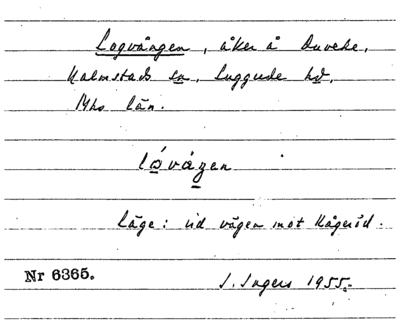 Logvången, åker å Duveke,
Halmstads sn, Luggude hd,
Mhs län.
låvågen
läge: vid vägen mot Kågeröd.
Nr 6365.
I. Ingers 1955.